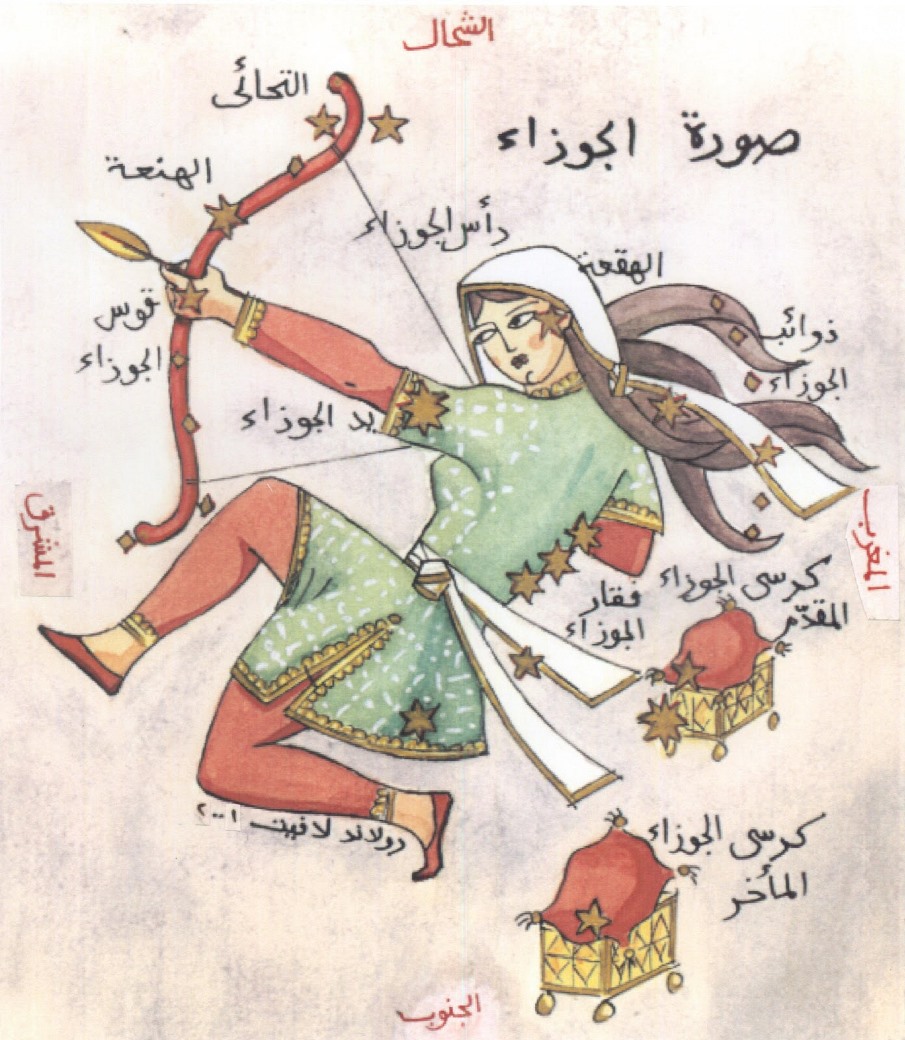 الشمال
صورة الجوزاء
التحائى
الهنعة
رأس الجوزاء
الهقعة
قوس
الجوزاء
ذوائب
الجوزاء
يد الجوزاء
المشرق
المغرب
كرسى الجوزاء
المقدّم
فقار
الجوزاء
رولاند لافيت ٢٠٠١
كرسى الجوزاء
المأخر
الجنوب